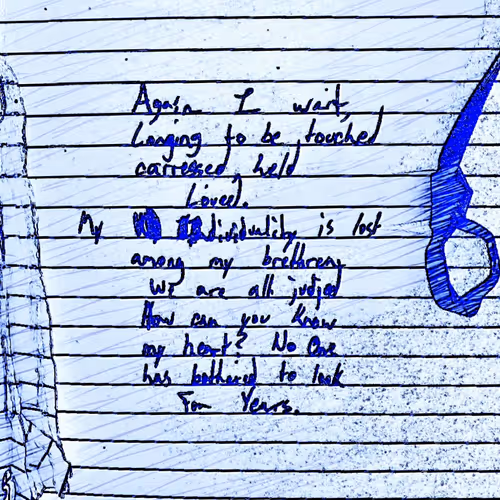 Again I wait,
Longing to be touched
carressed, held
Loved.
My individuality is lost
among my brethren,
We are all judged
How can you know
my heart? No One
has bothered to look
For Years.